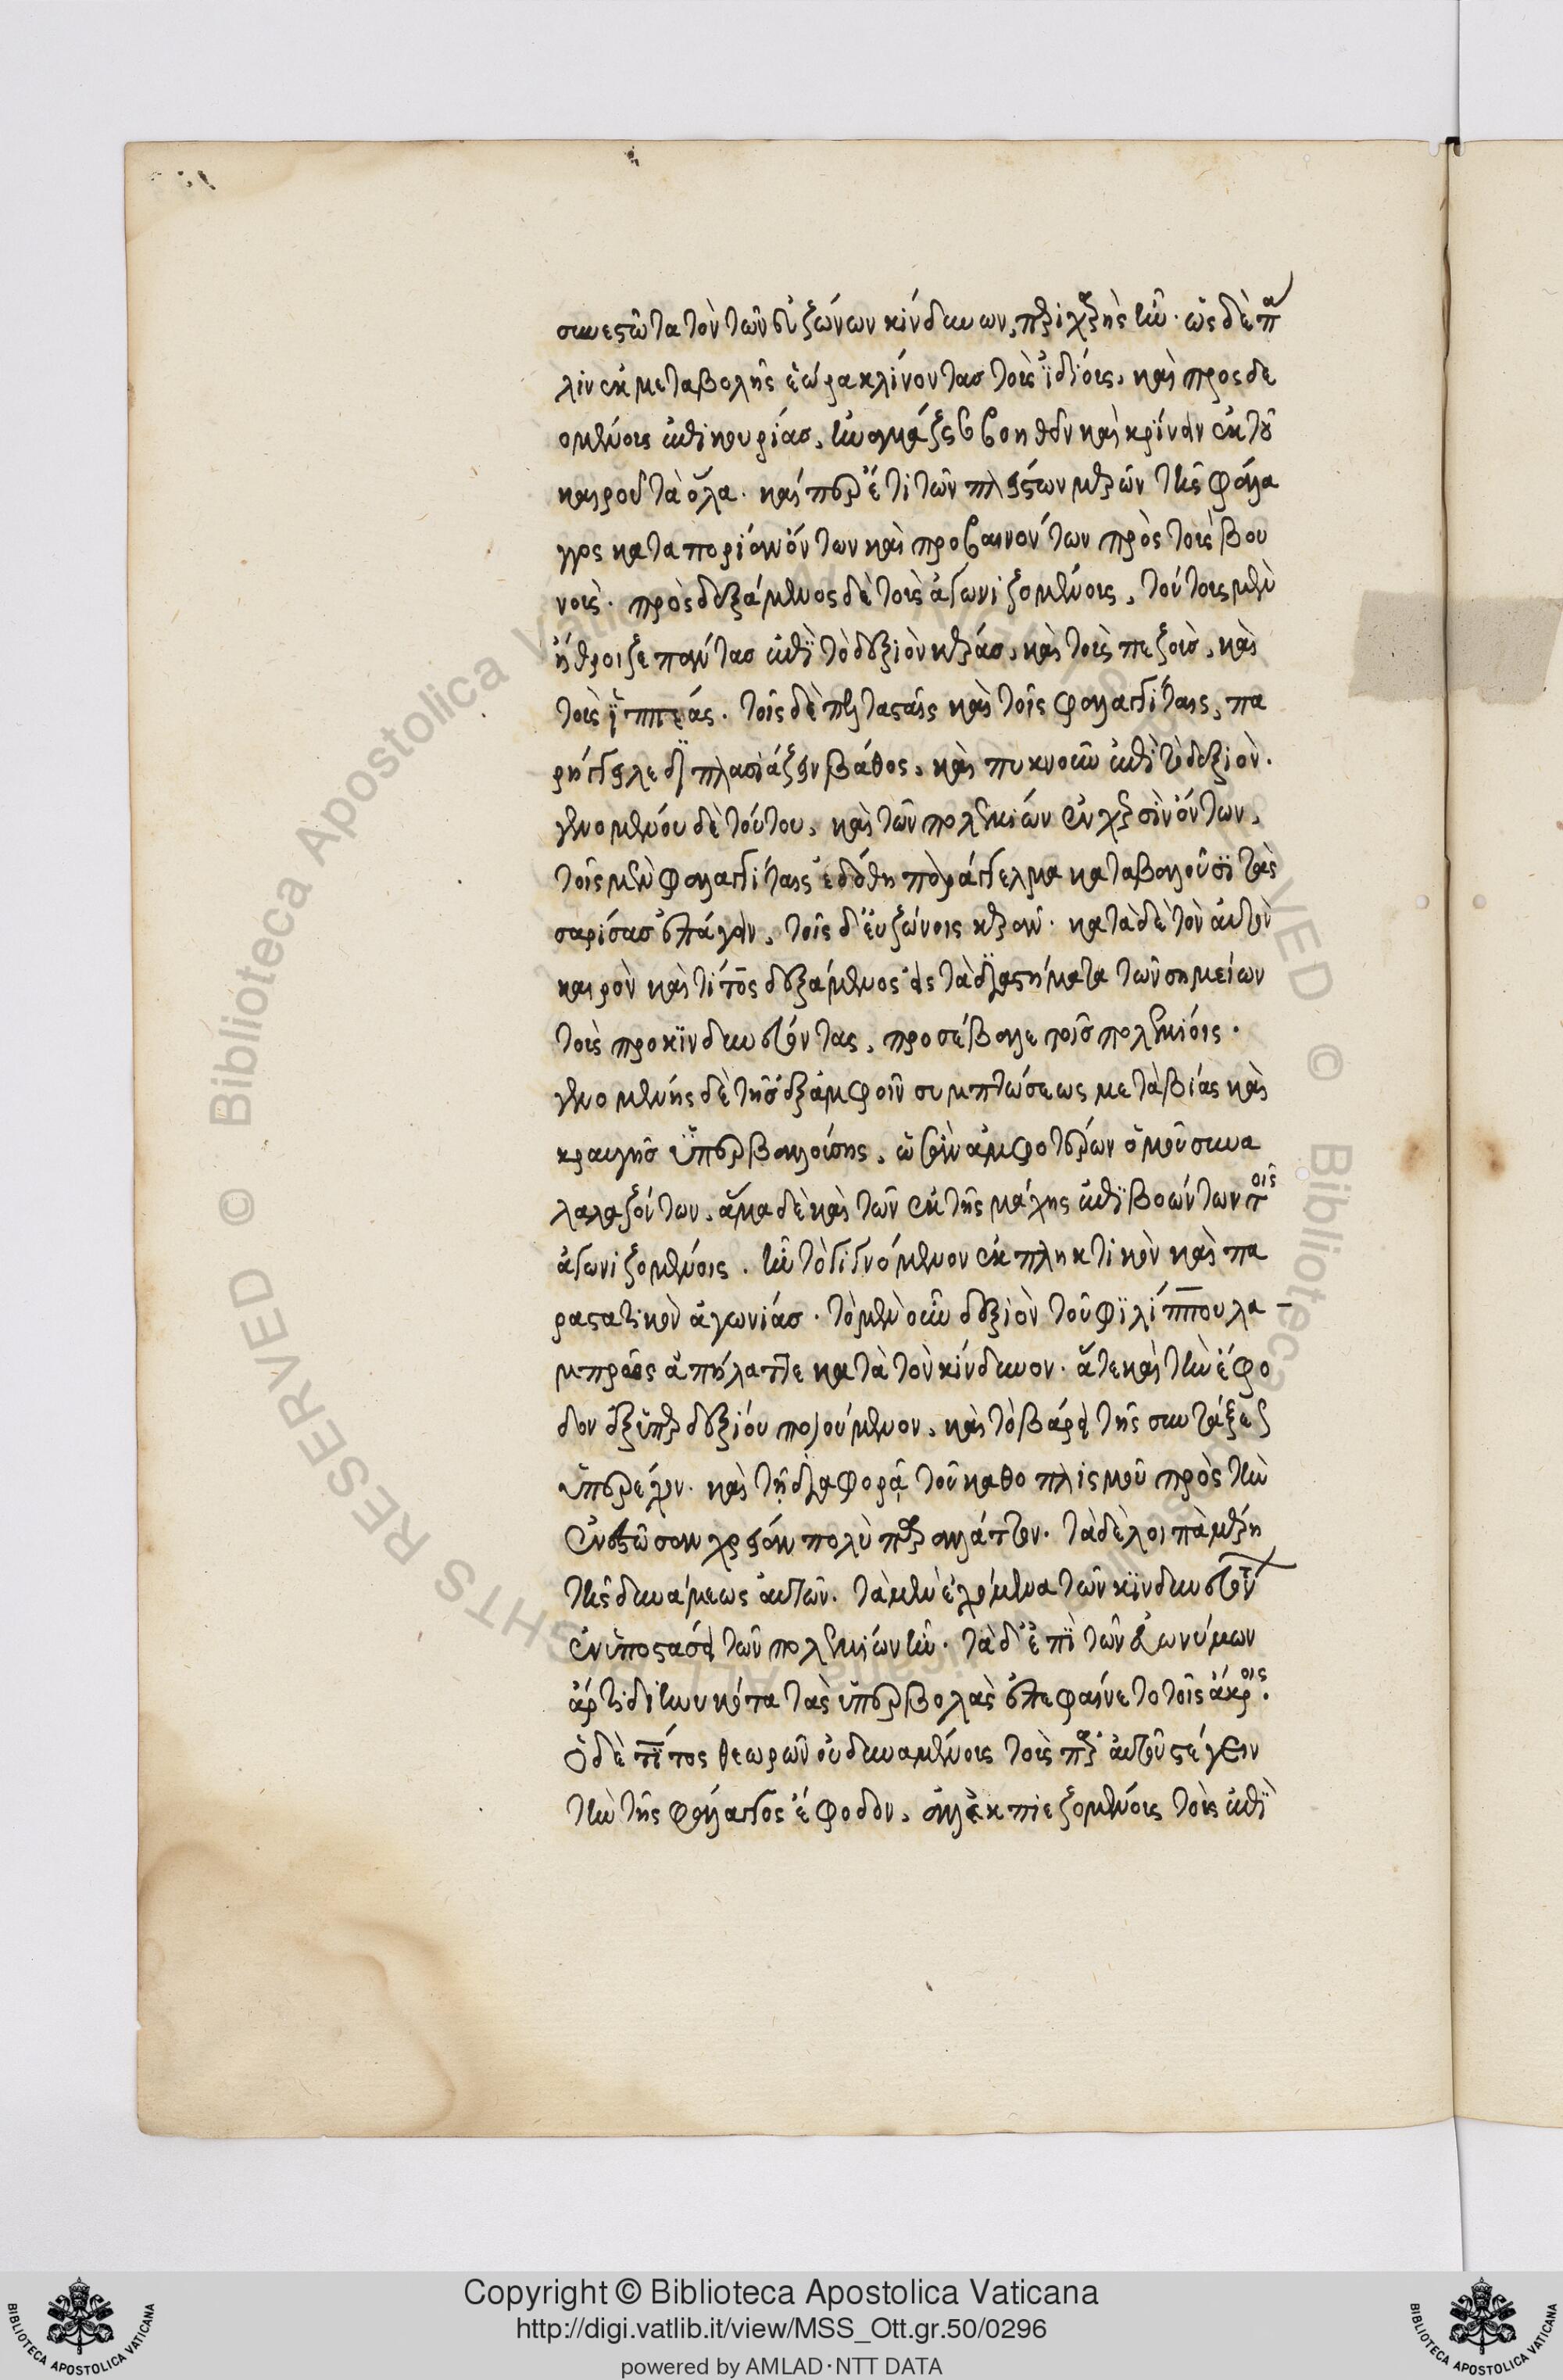 συνεστῶτα τὸν τῶν εὐζώνων κίνδυνον, περιχαρὴς ἦν. ὡς δὲ πά
λιν ἐκ μεταβολῆς ἑώρα κλίνοντας τοὺς ἰδίους, καὶ προσδε
ομένους ἐπικουρίας, ἠναγκάζετο βοηθεῖν καὶ κρίνειν ἐκ τοῦ
καιροῦ τὰ ὅλα. καίπερ ἔτι τῶν πλείστων μερῶν τῆς φάλα
γγος κατὰ πορείαν ὄντων καὶ προσβαινόντων πρὸς τοὺς βου
νούς. προσδεξάμενος δὲ τοὺς ἀγωνιζομένους, τούτους μὲν
ἤθροιζε πάντας ἐπὶ τὸ δεξιὸν κέρας, καὶ τοὺς πεζοὺς, καὶ
τοὺς ἱππέας. τοῖς δὲ πελτασταῖς καὶ τοῖς φαλαγγίταις, πα
ρήγγελε διπλασιάζειν βάθος, καὶ πυκνοῦν ἐπὶ τὸ δεξιόν.
γενομένου δὲ τούτου, καὶ τῶν πολεμίων ἐν χερσὶν ὄντων,
τοῖς μὲν φαλαγγίταις ἐδόθη παράγγελμα καταβαλοῦσι τὰς
σαρίσας ἐπάγειν, τοῖς δ' εὐζώνοις κερᾶν. κατὰ δὲ τὸν αὐτὸν
καιρὸν καὶ τίτος δεξάμενος εἰς τὰ διαστήματα τῶν σημείων
τοὺς προκινδυνεύοντας, προσέβαλε τοῖς πολεμίοις.
γενομένης δὲ τῆς ἐξ ἀμφοῖν συμπτώσεως μετὰ βίας καὶ
κραυγῆς ὑπερβαλλούσης, ὡς ἂν ἀμφοτέρων ὁμοῦ συνα
λαλαζόντων, ἅμα δὲ καὶ τῶν ἐκ τῆς μάχης ἐπιβοώντων τοῖς
ἀγωνιζομένοις. ἦν τὸ γιγνόμενον ἐκπληκτικὸν καὶ πα
ραστατικὸν ἀγωνίας. τὸ μὲν οὖν δεξιὸν τοῦ φιλίππου λα
μπρῶς ἀπήλαττε κατὰ τὸν κίνδυνον. ἅτε καὶ τὴν ἔφο
δον ἐξ ὑπερδεξίου ποιούμενον, καὶ τῷ βάρει τῆς συντάξεως
ὑπερέχον. καὶ τῇ διαφορᾷ τοῦ καθοπλισμοῦ πρὸς τὴν
ἐνεστῶσαν χρείαν πολὺ παραλάττον. τὰ δὲ λοιπὰ μέρη
τῆς δυνάμεως αὐτῶν. τὰ μὲν ἐχόμενα τῶν κινδυνευόντων
ἐν ὑποστάσει τῶν πολεμίων ἦν. τὰ δ' ἐπὶ τῶν εὐωνύμων
ἄρτι διηνυκότα τὰς ὑπερβολὰς ἐπεφαίνετο τοῖς ἄκροις.
Ὁ δὲ τίτος θεωρῶν οὐ δυναμένους τοὺς παρ' αὐτοῦ στέγειν
τὴν τῆς φάλαγγος ἔφοδον, ἀλλ' ἐκπιεζομένους τοὺς ἐπὶ
Copyright © Biblioteca Apostolica Vaticana
http://digi.vatlib.it/view/MSS_Ott.gr.50/0296
powered by AMLAD·NTT DATA